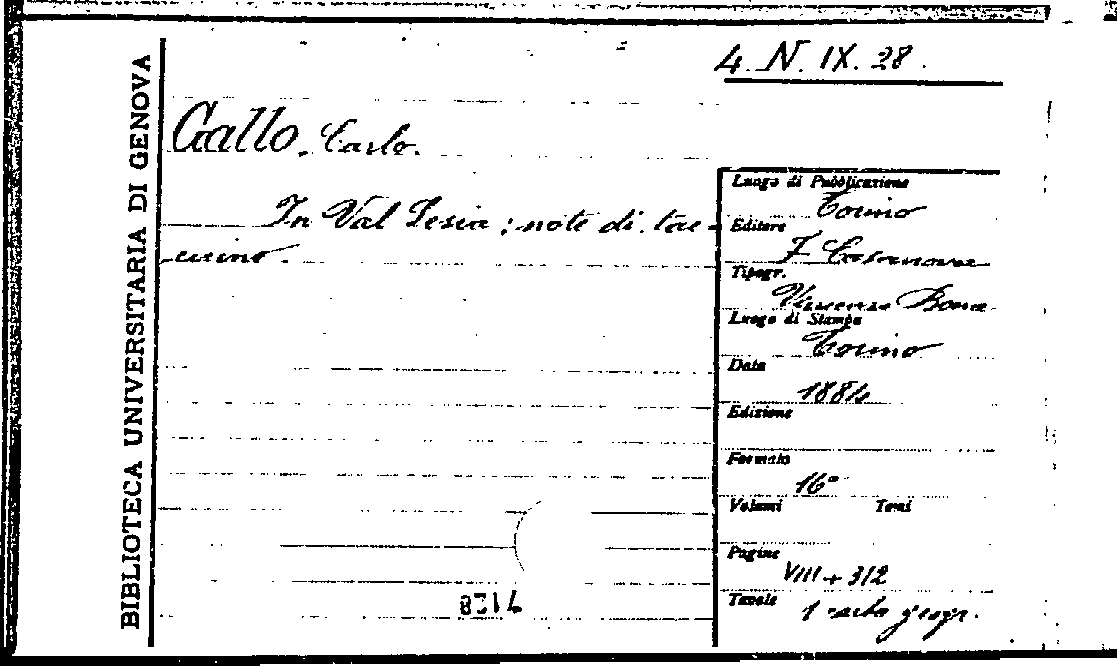 BIBLIOTECA UNIVERSITARIA DI GENOVA
4. N. IX. 28.
Gallo, Carlo.
In Val Sesia: note di tac-
cuino.
Luogo di Pubblicazione
Torino
Editore
F. Casanova
Tipogr.
Vincenzo Bona
Luogo di Stampa
Torino
Data
1884
Edizione
Formato
16°
Volumi Tomi
Pagine
VIII + 312
Tavole
1 carta geogr.